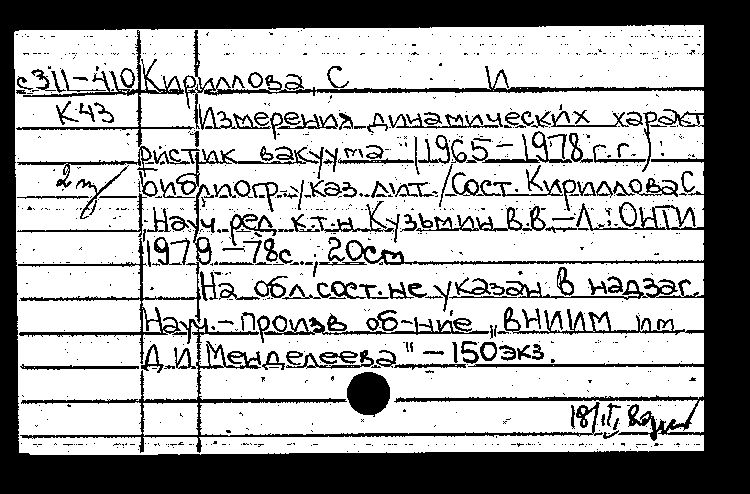 с311-410 Кириллова, С И
К43 Измерения динамических характ
ристик вакуума (1965-1978 г.г.):
библиогр. указ. лит. /Сост. Кириллова С.
Науч. ред. к.т.н Кузьмин В.В.-Л.: ОНТИ
1979 -78с, 20см
На обл. сост. не указан. В надзаг.
Науч.-произв об-ние „ВНИИМ им.
Д.И Менделеева" - 150экз.
18/II